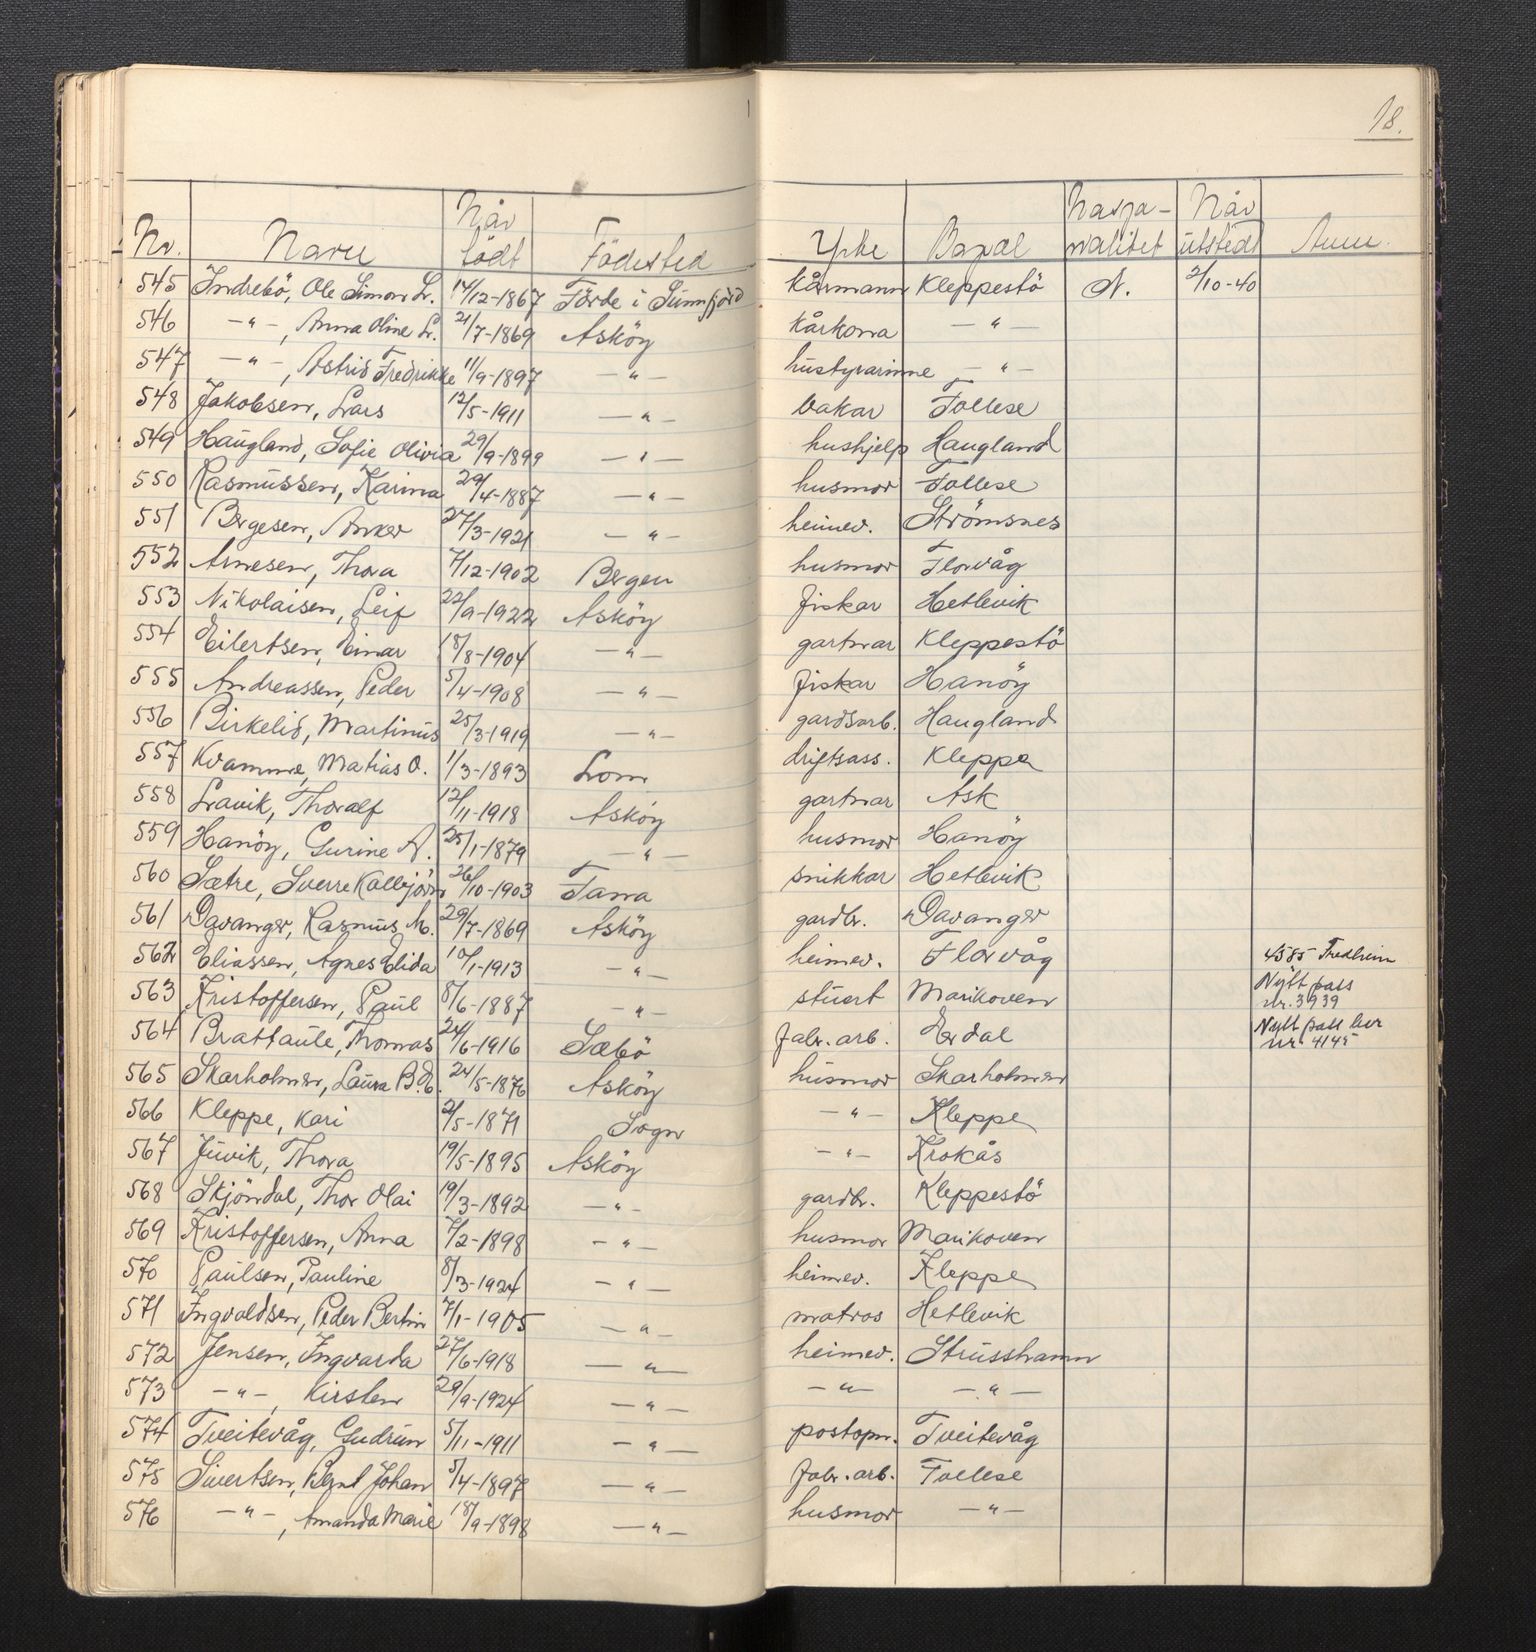 18.
Nr. Navn Når födt Födested Yrke Bopæl Nasjonalitet Når utstedt Anm.
545 Indrebö, Ole Simon L. 14/12-1867 Förde i Sunnfjord kårmann Kleppestö N. 2/10-40
546 —"—, Anna Oline L. 21/7-1869 Asköy kårkona —"—
547 —"—, Astrid Fredrikke 11/9-1897 —"— hustyrarinne —"—
548 Jakobsen, Lars 12/5-1911 —"— bakar Follese
549 Haugland, Sofie Olivia 29/9-1899 —"— hushjelp Haugland
550 Rasmussen, Karina 29/4-1887 —"— husmor Follese
551 Bergesen, Anker 27/3-1921 —"— heimev. Strömsnes
552 Arnesen, Thora 7/12-1902 Bergen husmor Florvåg
553 Nikolaisen, Leif 22/9-1922 Asköy fiskar Hetlevik
554 Eilertsen, Einar 18/8-1904 —"— gartnar Kleppestö
555 Andreassen, Peder 5/4-1908 —"— fiskar Hanöy
556 Birkelid, Martinus 25/3-1919 —"— gardsarb. Haugland
557 Kvamme, Matias O. 1/3-1893 Lom driftsass. Kleppe
558 Lravik, Thoralf 12/11-1918 Asköy gartnar Ask
559 Hanöy, Gurine A. 25/1-1879 —"— husmor Hanöy
560 Sætre, Sverre Kolbjörn 26/10-1903 Tana snikkar Hetlevik
561 Davanger, Rasmus M. 29/7-1869 Asköy gardbr. Davanger
562 Eliassen, Agnes Elida 10/1-1913 —"— heimev. Florvåg 4585 Fredheim
563 Kristoffersen, Paul 8/6-1887 —"— stuert Marikoven Nytt pass nr. 3939
564 Brattaule, Thomas 24/6-1916 Sæbö fabr. arb. Erdal Nytt pass her nr 4145
565 Skarholmen, Laura B.E. 24/5-1876 Asköy husmor Skarholmen
566 Kleppe, Kari 2/5-1871 Sogn —"— Kleppe
567 Juvik, Thora 19/5-1895 Asköy —"— Krokås
568 Skjöndal, Thor Olai 19/3-1892 —"— gardbr. Kleppestö
569 Kristoffersen, Anna 7/2-1898 —"— husmor Marikoven
570 Paulsen, Pauline 8/3-1924 —"— heimev. Kleppe
571 Ingvaldsen, Peder Bertin 7/1-1905 —"— matros Hetlevik
572 Jensen, Ingvarda 27/6-1918 —"— heimev. Strusshamn
573 —"— Kirsten 29/9-1924 —"— —"— —"—
574 Tveitevåg, Gudrun 5/11-1911 —"— postopn. Tveitevåg
575 Sivertsen, Bernt Johan 5/4-1897 —"— fabr. arb. Follese
576 —"—, Amanda Marie 18/9-1898 —"— husmor —"—